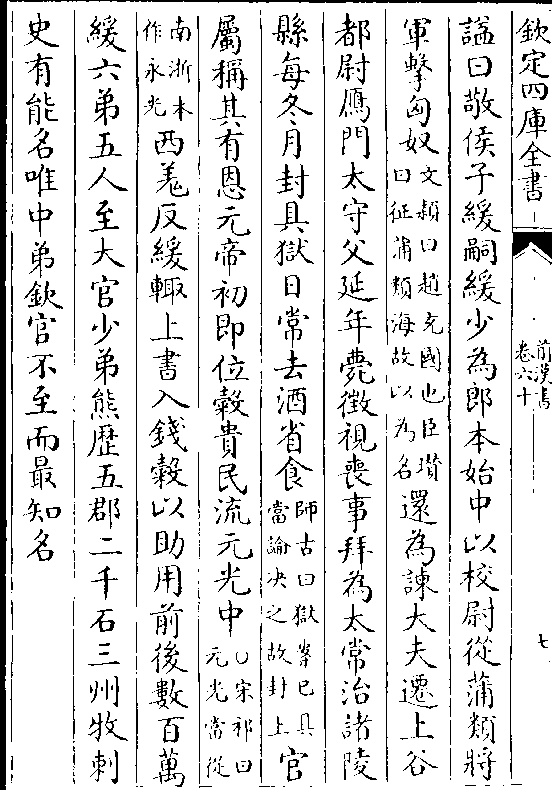 欽定四庫全書
前漢書
卷六十
七
謚曰敬侯子緩嗣緩少為郎本始中以校尉從蒲類將
軍擊匈奴文潁曰趙充國也臣瓚曰征蒲類海故以為名還為諫大夫遷上谷
都尉鴈門太守父延年薨徵視喪事拜為太常治諸陵
縣每冬月封具獄日常去酒省食師古曰獄案已具當論決之故封上官
屬稱其有恩元帝初即位穀貴民流元光中○宋祁曰元光當從
南浙本作永光西羌反緩輙上書入錢穀以助用前後數百萬
緩六弟五人至大官少弟熊歷五郡二千石三州牧刺
史有能名唯中弟欽官不至而最知名